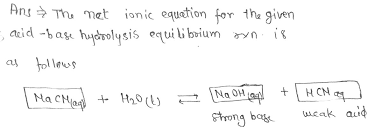 Ans ⇒ The net ionic equation for the given
acid-base hydrolysis equilibrium rxn. is
as follows
NaCN(aq) + H2O(l) ⇌ NaOH(aq) + HCN aq
strong base weak acid